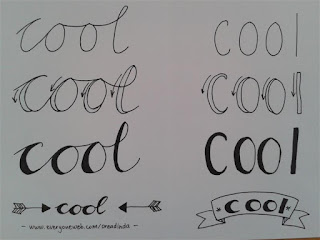 cool cool
cool cool
cool cool
cool cool
- www.everyoneweb.com/dreadinda -